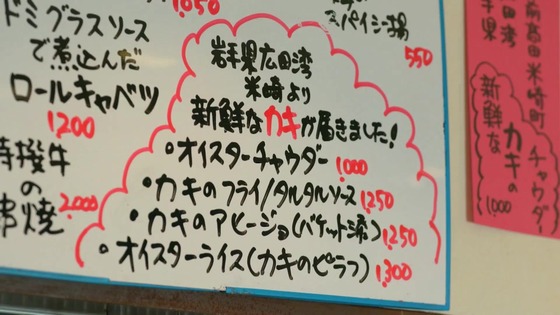 1,050
ドミグラスソース
で煮込んだ
ロールキャベツ
1200
特撰牛
の
串焼
2,000
スパイシー揚
550
岩手県広田湾
米崎より
新鮮なカキが届きました!
・オイスターチャウダー 1,000
・カキのフライ/タルタルソース 1,250
・カキのアヒージョ(バケット添) 1,250
・オイスターライス(カキのピラフ) 1,300
前高田市米崎町
田湾
手県
新鮮な
カキの
チャウダー
1,000